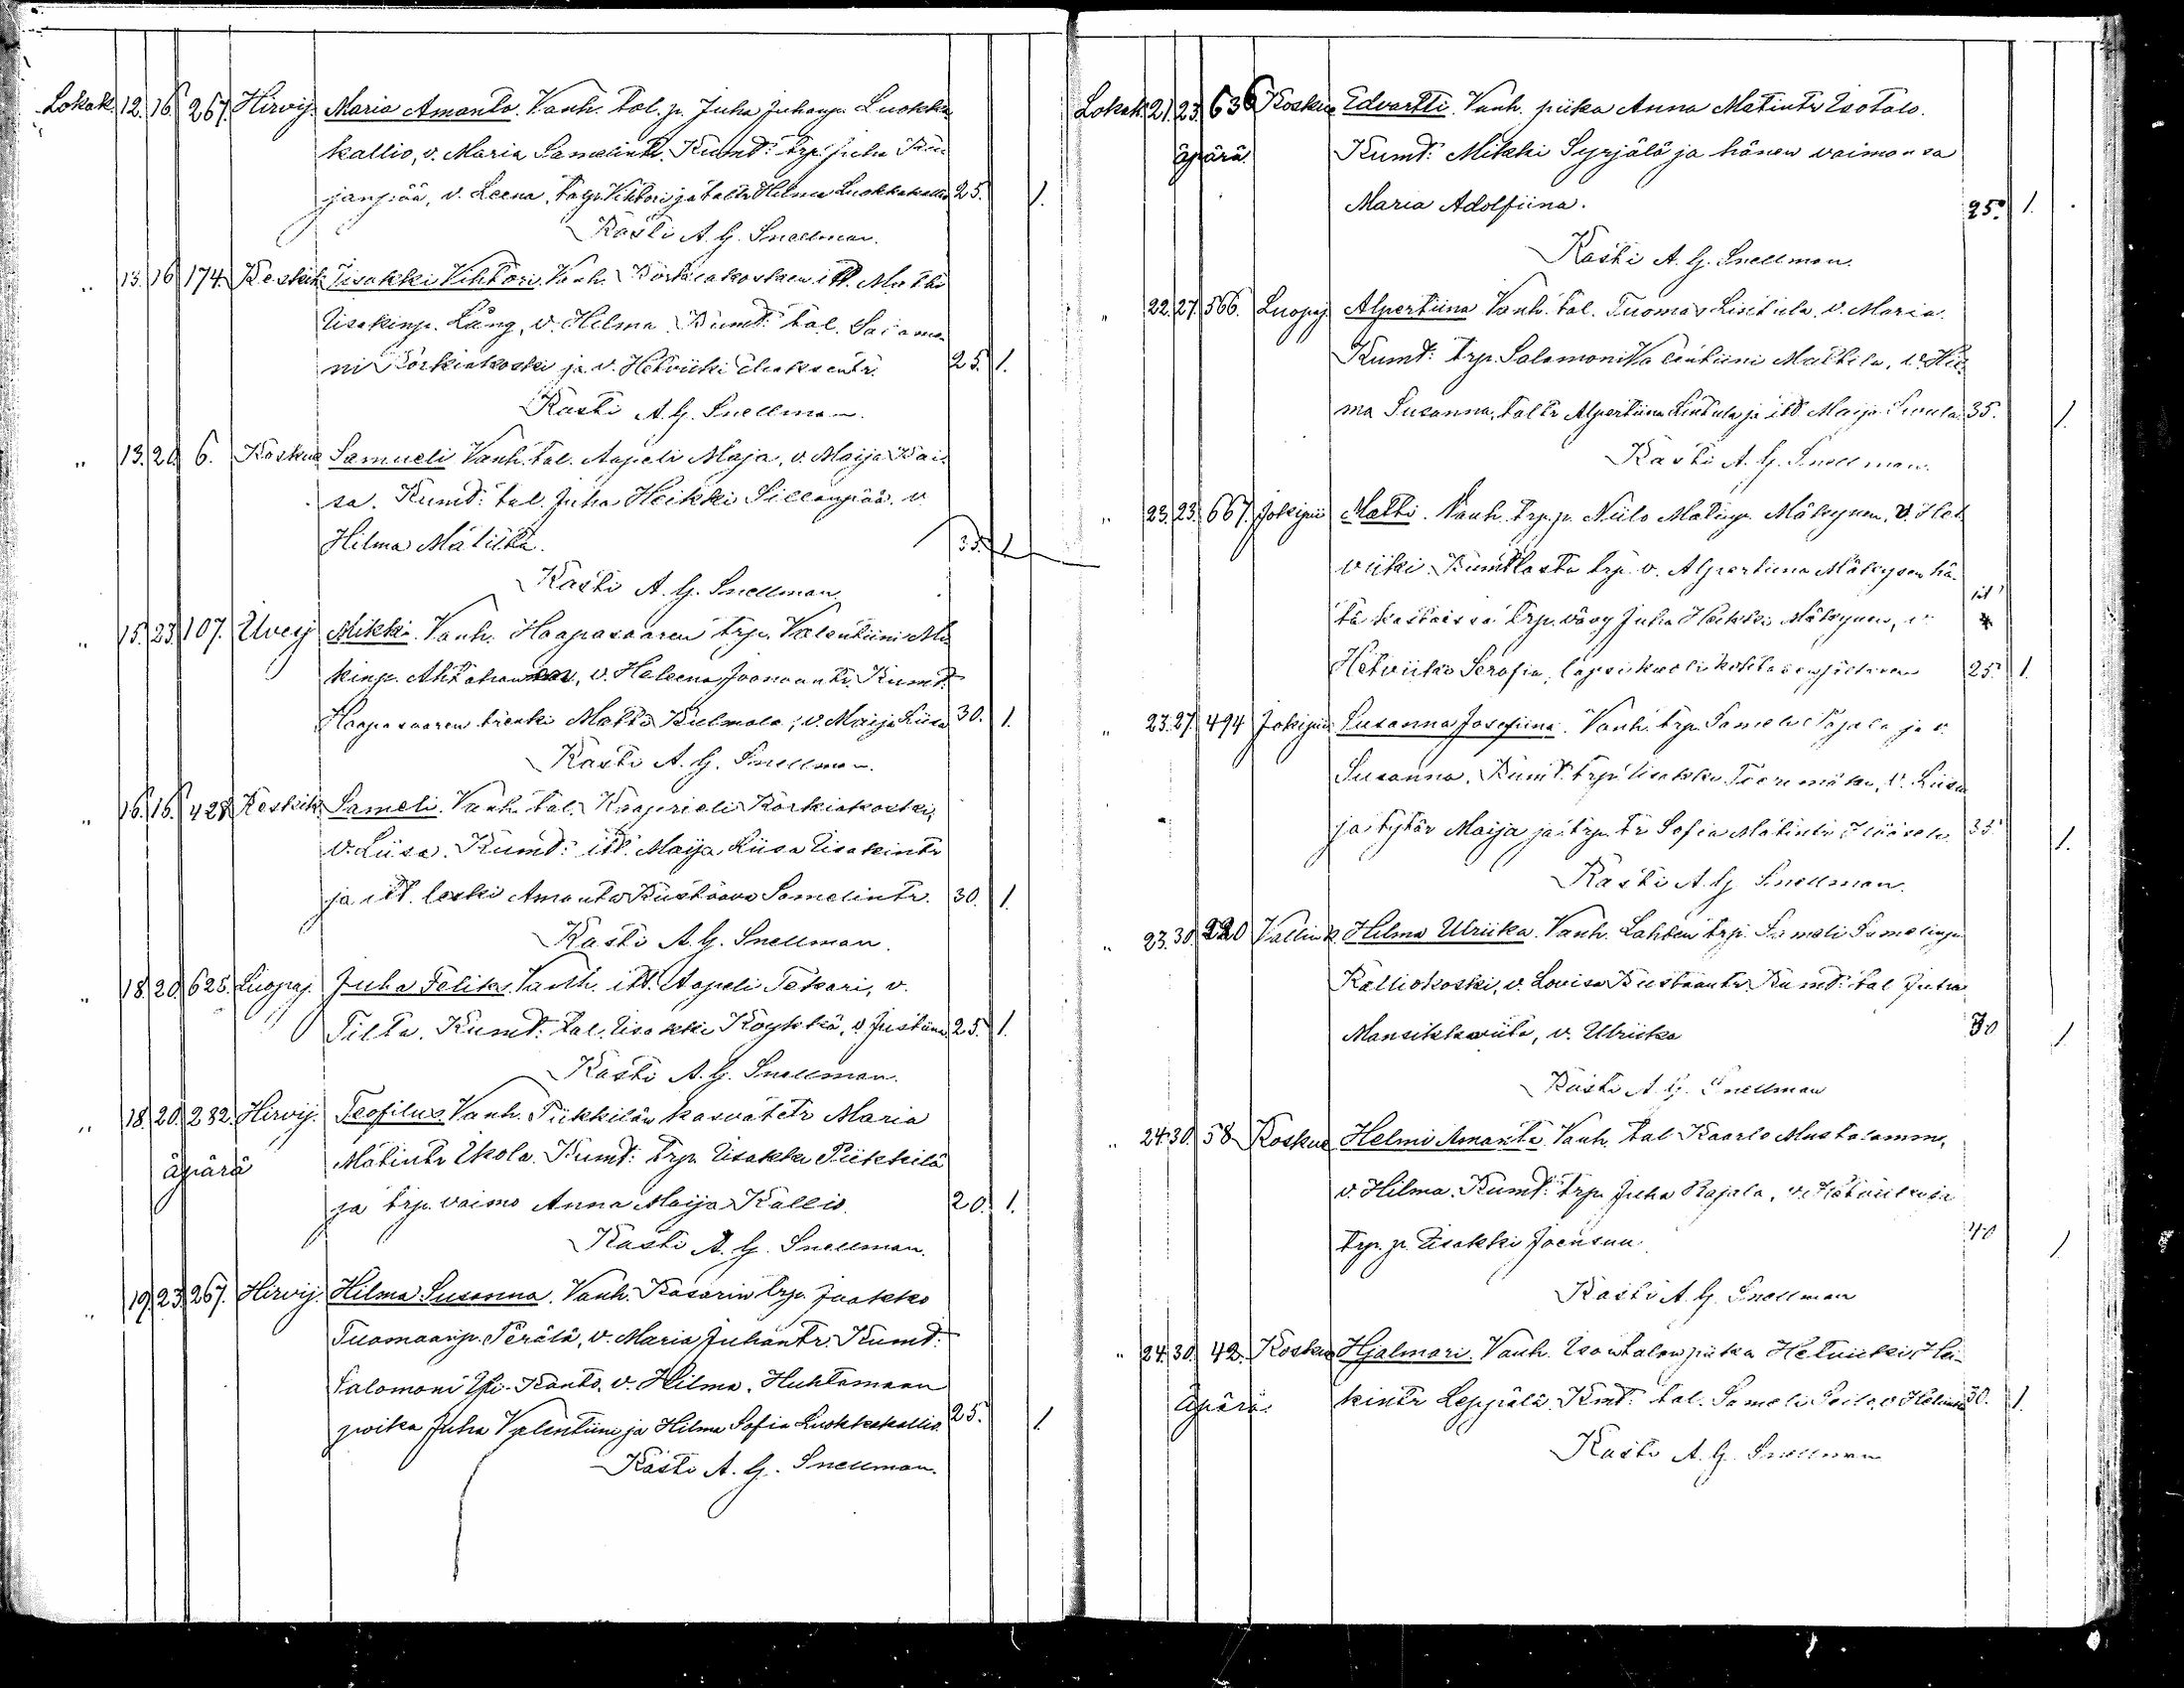 Lokak. 12. 16. 267. Hirvij. Maria Amanta. Vanh. tal. p. Juha Juhanp. Luokka
kallio, v. Maria Samelintr. Kumt: trp. Juha
janpää, v. Leena, talp. Vihtori ja taltr Hilma Luokkakallio 25. 1.
Kasti A. G. Snellman.
" 13. 16 174. Keskik. Iisakki Vihtori. Vanh. Körkiakosken itl. Matti
Iisakinp. Lång, v. Hilma. Kumt: tal. Salamo
ni Körkiakoski ja v. Hetviiki 25. 1.
Kasti A. G. Snellman.
" 13. 20 6. Koskue Samueli. Vanh. tal. Aapeli Maja, v. Maija Kai
sa. Kumt: tal. Juha Heikki Sillanpää. v.
Hilma Matilta. 35. 1
Kasti A. G. Snellman.
" 15. 23. 107. Ilvesj Mikki. Vanh. Haapasaaren trp. Valentiini Mi
kinp. v. Heleena Joonaantr. Kumt:
Haapasaaren trenki Matti Kulmala, v. Maija Liisa 30. 1.
Kasti A. G. Snellman.
" 16. 16. 428 Keskik. Sameli. Vanh. tal. Kaaprieli Körkiakoski,
v. Liisa. Kumt: itl. Maija Liisa Iisakintr
ja itl. leski Amanta Kustaava Samelintr. 30. 1.
Kasti A. G. Snellman.
" 18. 20. 625. Luopaj. Juha Feliks. Vanh. itl. Aapeli Tekari, v.
Tilta. Kumt: tal. Iisakki Koykkä, v. Justiina 25. 1.
Kasti A. G. Snellman.
" 18. 20. 232. Hirvij. Teofilus. Vanh. Piikkilän kasvatetr Maria
äpärä Matintr Ikola. Kumt: trp. Iisakki Piikkilä
ja trp. vaimo Anna Maija Kallio. 20. 1.
Kasti A. G. Snellman.
" 19. 23. 267. Hirvij. Hilma Susanna. Vanh. Kasarin trp. Jaakko
Tuomaanp. Perälä, v. Maria Juhantr. Kumt:
Salomoni Yli-Kanto, v. Hilma, Huhtamaan
poika Juha Valentiini ja Hilma Sofia Luokkakallio. 25. 1.
Kasti A. G. Snellman.
Lokak. 21. 23. 636 Koskue Edvartti. Vanh. piika Anna Matintr Isotalo.
äpärä Kumt: Mikki Syrjälä ja hänen vaimonsa
Maria Adolfiina. 25. 1.
Kasti A. G. Snellman.
" 22. 27. 566. Luopaj. Alpertiina Vanh. tal. Tuomas Lintula, v. Maria.
Kumt: trp. Salomoni Valentiini Mattila, v. Hil
ma Susanna, taltr Alpertiina Lintula ja itl Maija 35. 1.
Kasti A. G. Snellman.
" 23. 23. 667. Jokipii Matti. Vanh. trp. p. Niilo Matinp. Mäkynen, v. Het
viiki. Kumt: trp. v. Alpertiina Mäkysen hä
tä kastaissa trp. Juha Heikki Mäkynen, v.
Hetviika Serafia, 25. 1.
" 23. 27. 494 Jokipii Susanna Josefiina. Vanh. trp. Sameli Rajala ja v.
Susanna. Kumt: trp. Iisakki v. Liisa
ja tytär Maija ja trp. tr Sofia Matintr 35. 1.
Kasti A. G. Snellman.
" 23. 30. 220 Vallink. Hilma Ulriika. Vanh. Lahden trp. Sameli Samelinp.
Kalliokoski, v. Lovisa Kustaantr. Kumt: tal Juha
Mansikkaviita, v. Ulriika 30 1
Kasti A. G. Snellman
" 24 30. 58 Koskue Helmi Amanta. Vanh. tal Kaarlo Mustalammi,
v. Hilma. Kumt: trp. Juha Rajala, v. Hetviika ja
trp. p. Iisakki Joensuu. 40 1
Kasti A. G. Snellman
" 24. 30. 42. Koskue Hjalmari. Vanh. Isontalon piika Hetviiki Hei
äpärä. kintr Leppälä. Kmt: tal. Sameli v. 30. 1.
Kasti A. G. Snellman